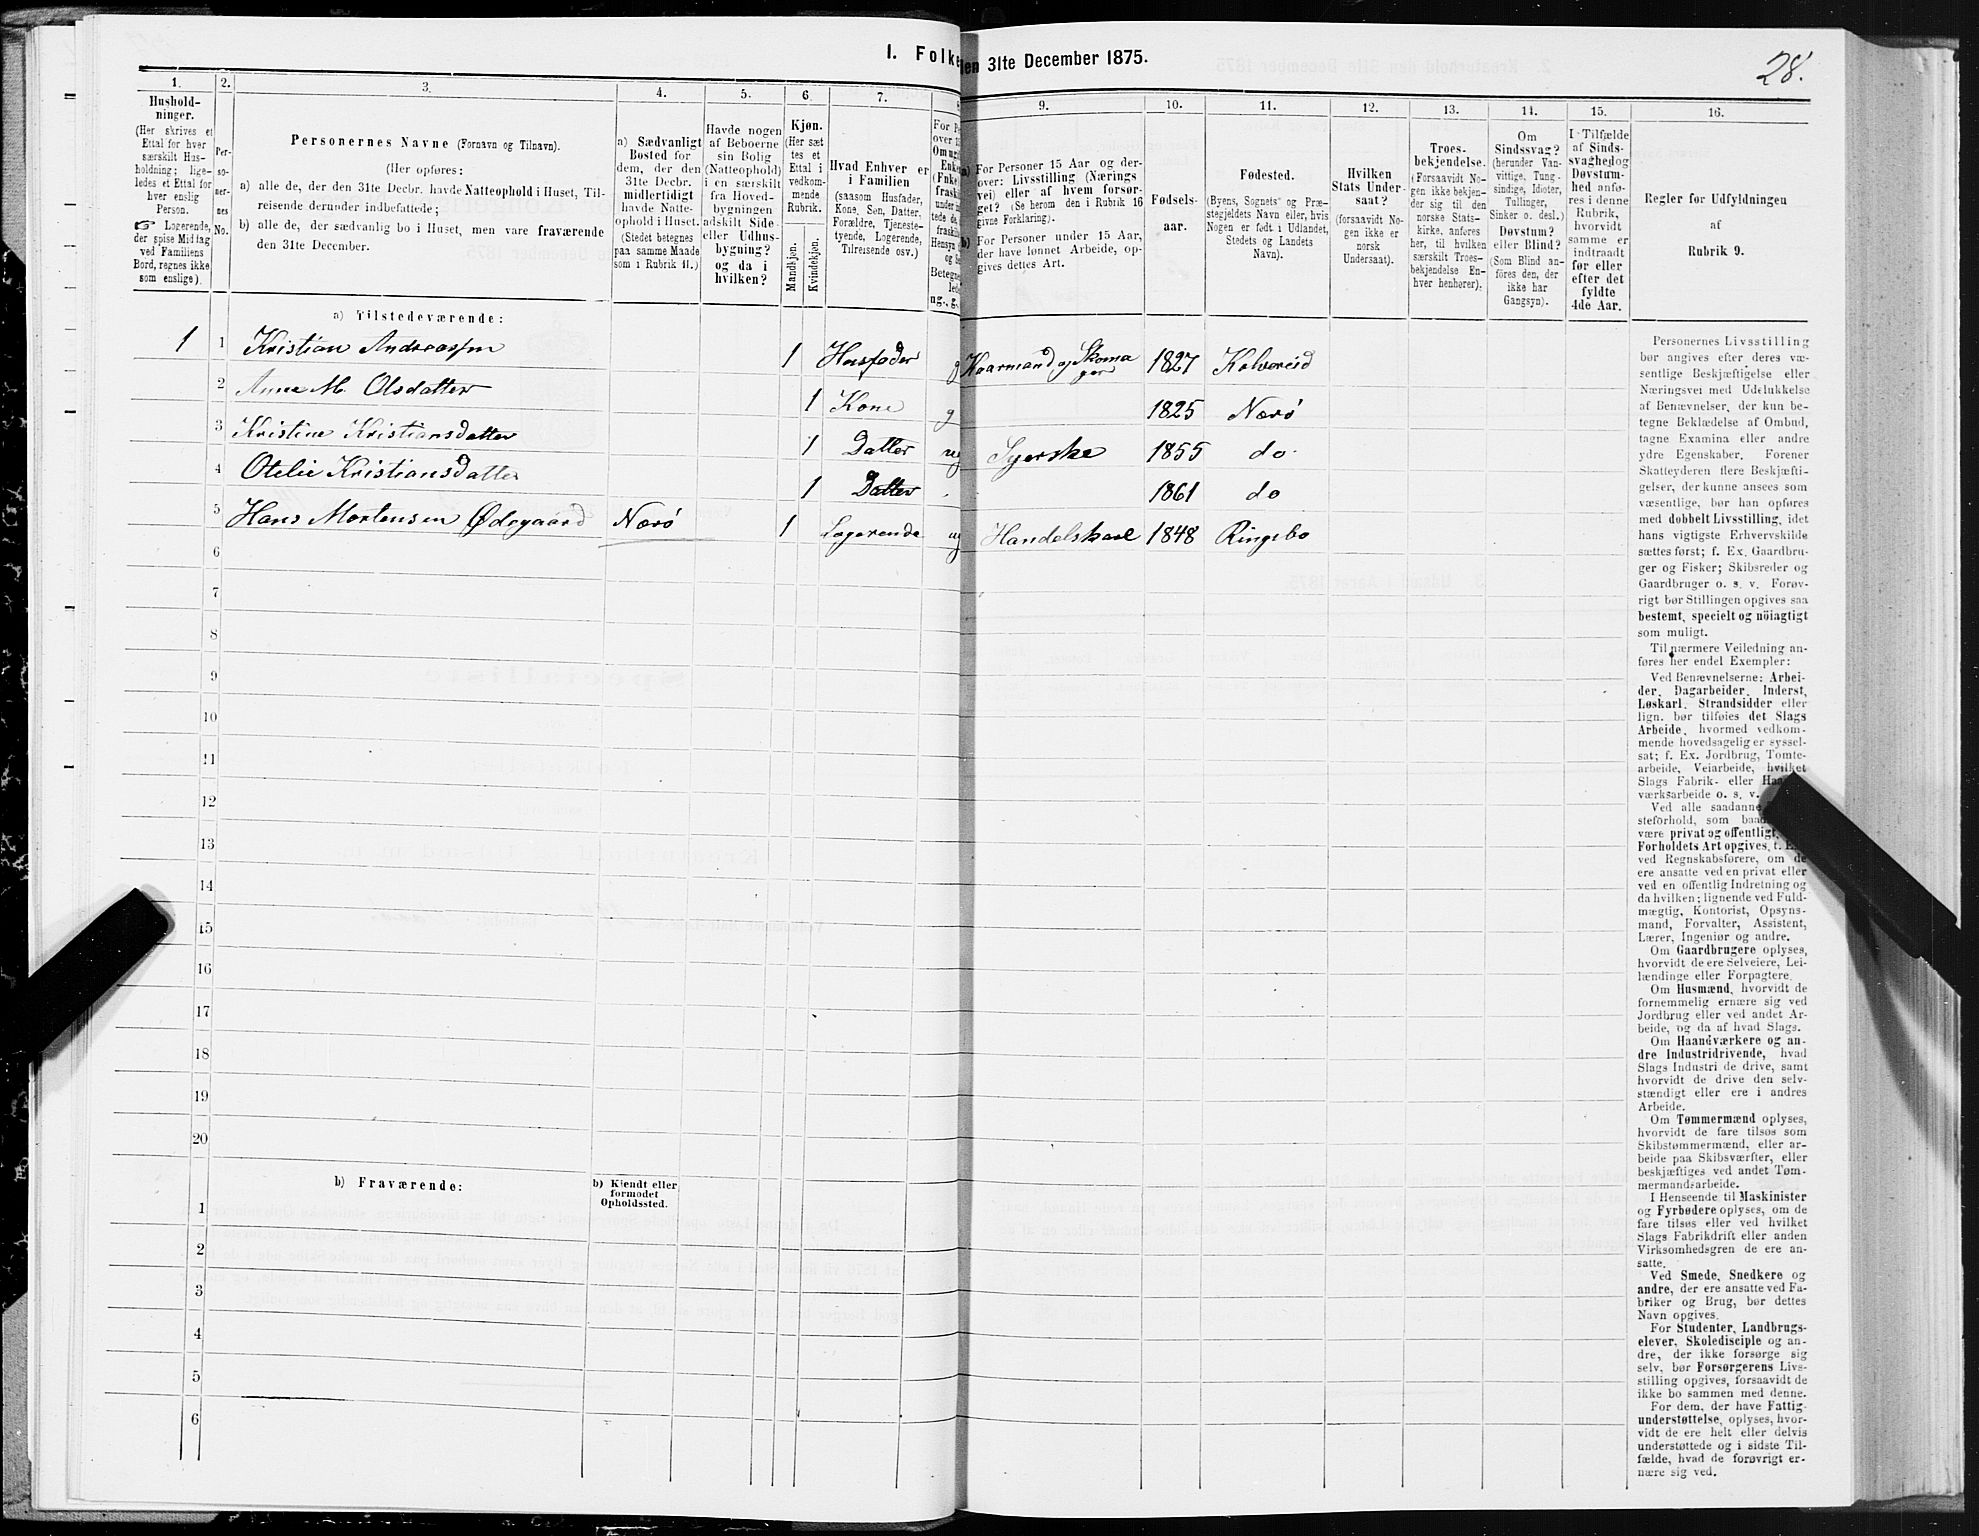 I. Folke
en 31te December 1875.
28.
1.
2.
3.
4.
5.
6.
7.
8
9.
10.
11.
12.
13.
14.
15.
16.
Hushold-
ninger.
(Her skrives et
Ettal for hver
særskilt Hus-
holdning; lige-
ledes et Ettal for
hver enslig
Person.
☞ Logerende,
der spise Middag
ved Familiens
Bord, regnes ikke
som enslige).
Per-
so-
ner-
nes
No.
Personernes Navne (Fornavn og Tilnavn).
(Her opføres:
a) alle de, der den 31te Decbr. havde Natteophold i Huset, Til-
reisende derunder indbefattede;
b) alle de, der sædvanlig bo i Huset, men vare fraværende
den 31te December.
a) Sædvanligt
Bosted for
dem, der den
31te Decbr.
midlertidigt
havde Natte-
ophold i Huset.
(Stedet betegnes
paa samme Maade
som i Rubrik 11.)
Havde nogen
af Beboerne
sin Bolig
(Natteophold)
i en særskilt
fra Hoved-
bygningen
adskilt Side-
eller Udhus-
bygning?
og da i
hvilken?
Kjøn.
(Her sæt-
tes et
Ettal i
vedkom-
mende
Rubrik.
Mandkjøn.
Kvindekjøn.
Hvad Enhver er
i Familien
(saasom Husfader,
Kone, Søn, Datter,
Forældre, Tjeneste-
tyende, Logerende,
Tilreisende osv.)
For Pe
over 15
Om ugi
Enke
(Enke
fraski
under in
tede de,
fraskil
Hensyn
og Se
Betegne
lede
ug., g.,
a) For Personer 15 Aar og der-
over: Livsstilling (Nærings-
vei) eller af hvem forsør-
get? (Se herom den i Rubrik 16
givne Forklaring).
b) For Personer under 15 Aar,
der have lønnet Arbeide, op-
gives dettes Art.
Fødsels-
aar.
Fødested.
(Byens, Sognets' og Præ-
stegjeldets Navn eller, hvis
Nogen er født i Udlandet,
Stedets og Landets
Navn).
Hvilken
Stats Under-
saat?
(forsaavidt No-
gen ikke er
norsk
Undersaat).
Troes-
bekjendelse.
(Forsaavidt No-
gen ikke bekjen-
der sig til den
norske Stats-
kirke, anføres
her, til hvilken
særskilt Troes-
bekjendelse En-
hver henhører).
Om
Sindssvag?
(herunder Van-
vittige, Tung-
sindige, Idioter,
Tullinger,
Sinker o. desl.)
Døvstum?
eller Blind?
(Som Blind an-
føres den, der
ikke har
Gangsyn).
I Tilfælde
af Sinds-
svaghed og
Døvstum-
hed anfø-
res i denne
Rubrik,
hvorvidt
samme er
indtraadt
før eller
efter det
fyldte
4de Aar.
Regler for Udfyldningen
af
Rubrik 9.
a) Tilstedeværende:
1 1 Kristian Andreassen 1 Husfader g Kaarmand og Skoma
ger 1827 Kolvereid
2 Anne M. Olsdatter 1 Kone g 1825 Nærø
3 Kristine Kristiansdatter 1 Datter ug Syerske 1855 do
4 Otelie Kristiansdatter 1 Datter 1861 do
5 Hans Mortensen Ødegaard Nærø 1 Logerende ug Handelskarl 1848 Ringebo
6
7
8
9
10
11
12
13
14
15
16
17
18
19
20
b) Fraværende:
b) Kjendt eller
formodet
Opholdssted.
1
2
3
4
5
6
Personernes Livsstilling
bør angives efter deres væ-
sentlige Beskjæftigelse eller
Næringsvei med Udelukkelse
af Benævnelser, der kun be-
tegne Beklædelse af Ombud,
tagne Examina eller andre
ydre Egenskaber. Forener
Skatteyderen flere Beskjæfti-
gelser, der kunne ansees som
væsentlige, bør han opføres
med dobbelt Livsstilling, idet
hans vigtigste Erhvervskilde
sættes først; f. Ex. Gaardbru-
ger og Fisker; Skibsreder og
Gaardbruger o. s. v. Forøv-
rigt bør Stillingen opgives saa
bestemt, specielt og nöiagtigt
som muligt.
Til nærmere Veiledning an-
føres her endel Exempler:
Ved Benævnelserne: Arbei-
der, Dagarbeider, Inderst,
Løskarl, Strandsidder eller
lign. bør tilføies det Slags
Arbeide, hvormed vedkom-
mende hovedsagelig er syssel-
sat; f. Ex. Jordbrug, Tomte-
arbeide, Veiarbeide, hvilket
Slags Fabrik- eller Haand-
værksarbeide o. s. v.
Ved alle saadanne
steforhold, som baade
være privat og offentligt,
Forholdets Art opgives, f. Ex.
ved Regnskabsførere, om de
ere ansatte ved en privat eller
ved en offentlig Indretning og
da hvilken; lignende ved Fuld-
mægtig, Kontorist, Opsyns-
mand, Forvalter, Assistent,
Lærer, Ingeniør og andre.
Om Gaardbrugere oplyses,
hvorvidt de ere Selveiere, Lei-
lændinge eller Forpagtere.
Om Husmænd, hvorvidt de
fornemmelig ernære sig ved
Jordbrug eller ved andet Ar-
beide, og da af hvad Slags.
Om Haandværkere og an-
dre Industridrivende, hvad
Slags Industri de drive, samt
hvorvidt de drive den selv-
stændigt eller ere i andres
Arbeide.
Om Tømmermænd oplyses,
hvorvidt de fare tilsøs som
Skibstømmermænd, eller ar-
beide paa Skibsværfter, eller
beskjæftiges ved andet Tøm-
mermandsarbeide.
I Henseende til Maskinister
og Fyrbødere oplyses, om de
fare tilsøs eller ved hvilket
Slags Fabrikdrift eller anden
Virksomhedsgren de ere an-
satte.
Ved Smede, Snedkere og
andre, der ere ansatte ved Fa-
briker og Brug, bør dettes
Navn opgives.
For Studenter, Landbrugs-
elever, Skoledisciple og an-
dre, der ikke forsørge sig
selv, bør Forsørgerens Livs-
stilling opgives, forsaavidt de
ikke bo sammen med denne.
For dem, der have Fattig-
understøttelse, oplyses, hvor-
vidt de ere helt eller delvis
understøttede og i sidste Til-
fælde, hvad de forøvrigt er-
nære sig ved.